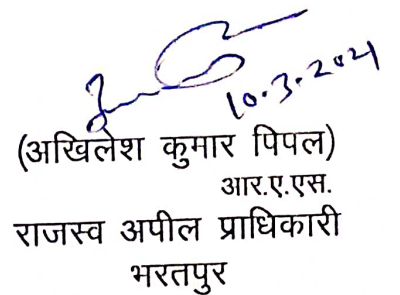 10.3.2021
(अखिलेश कुमार पिपल)
आर.ए.एस.
राजस्व अपील प्राधिकारी
भरतपुर